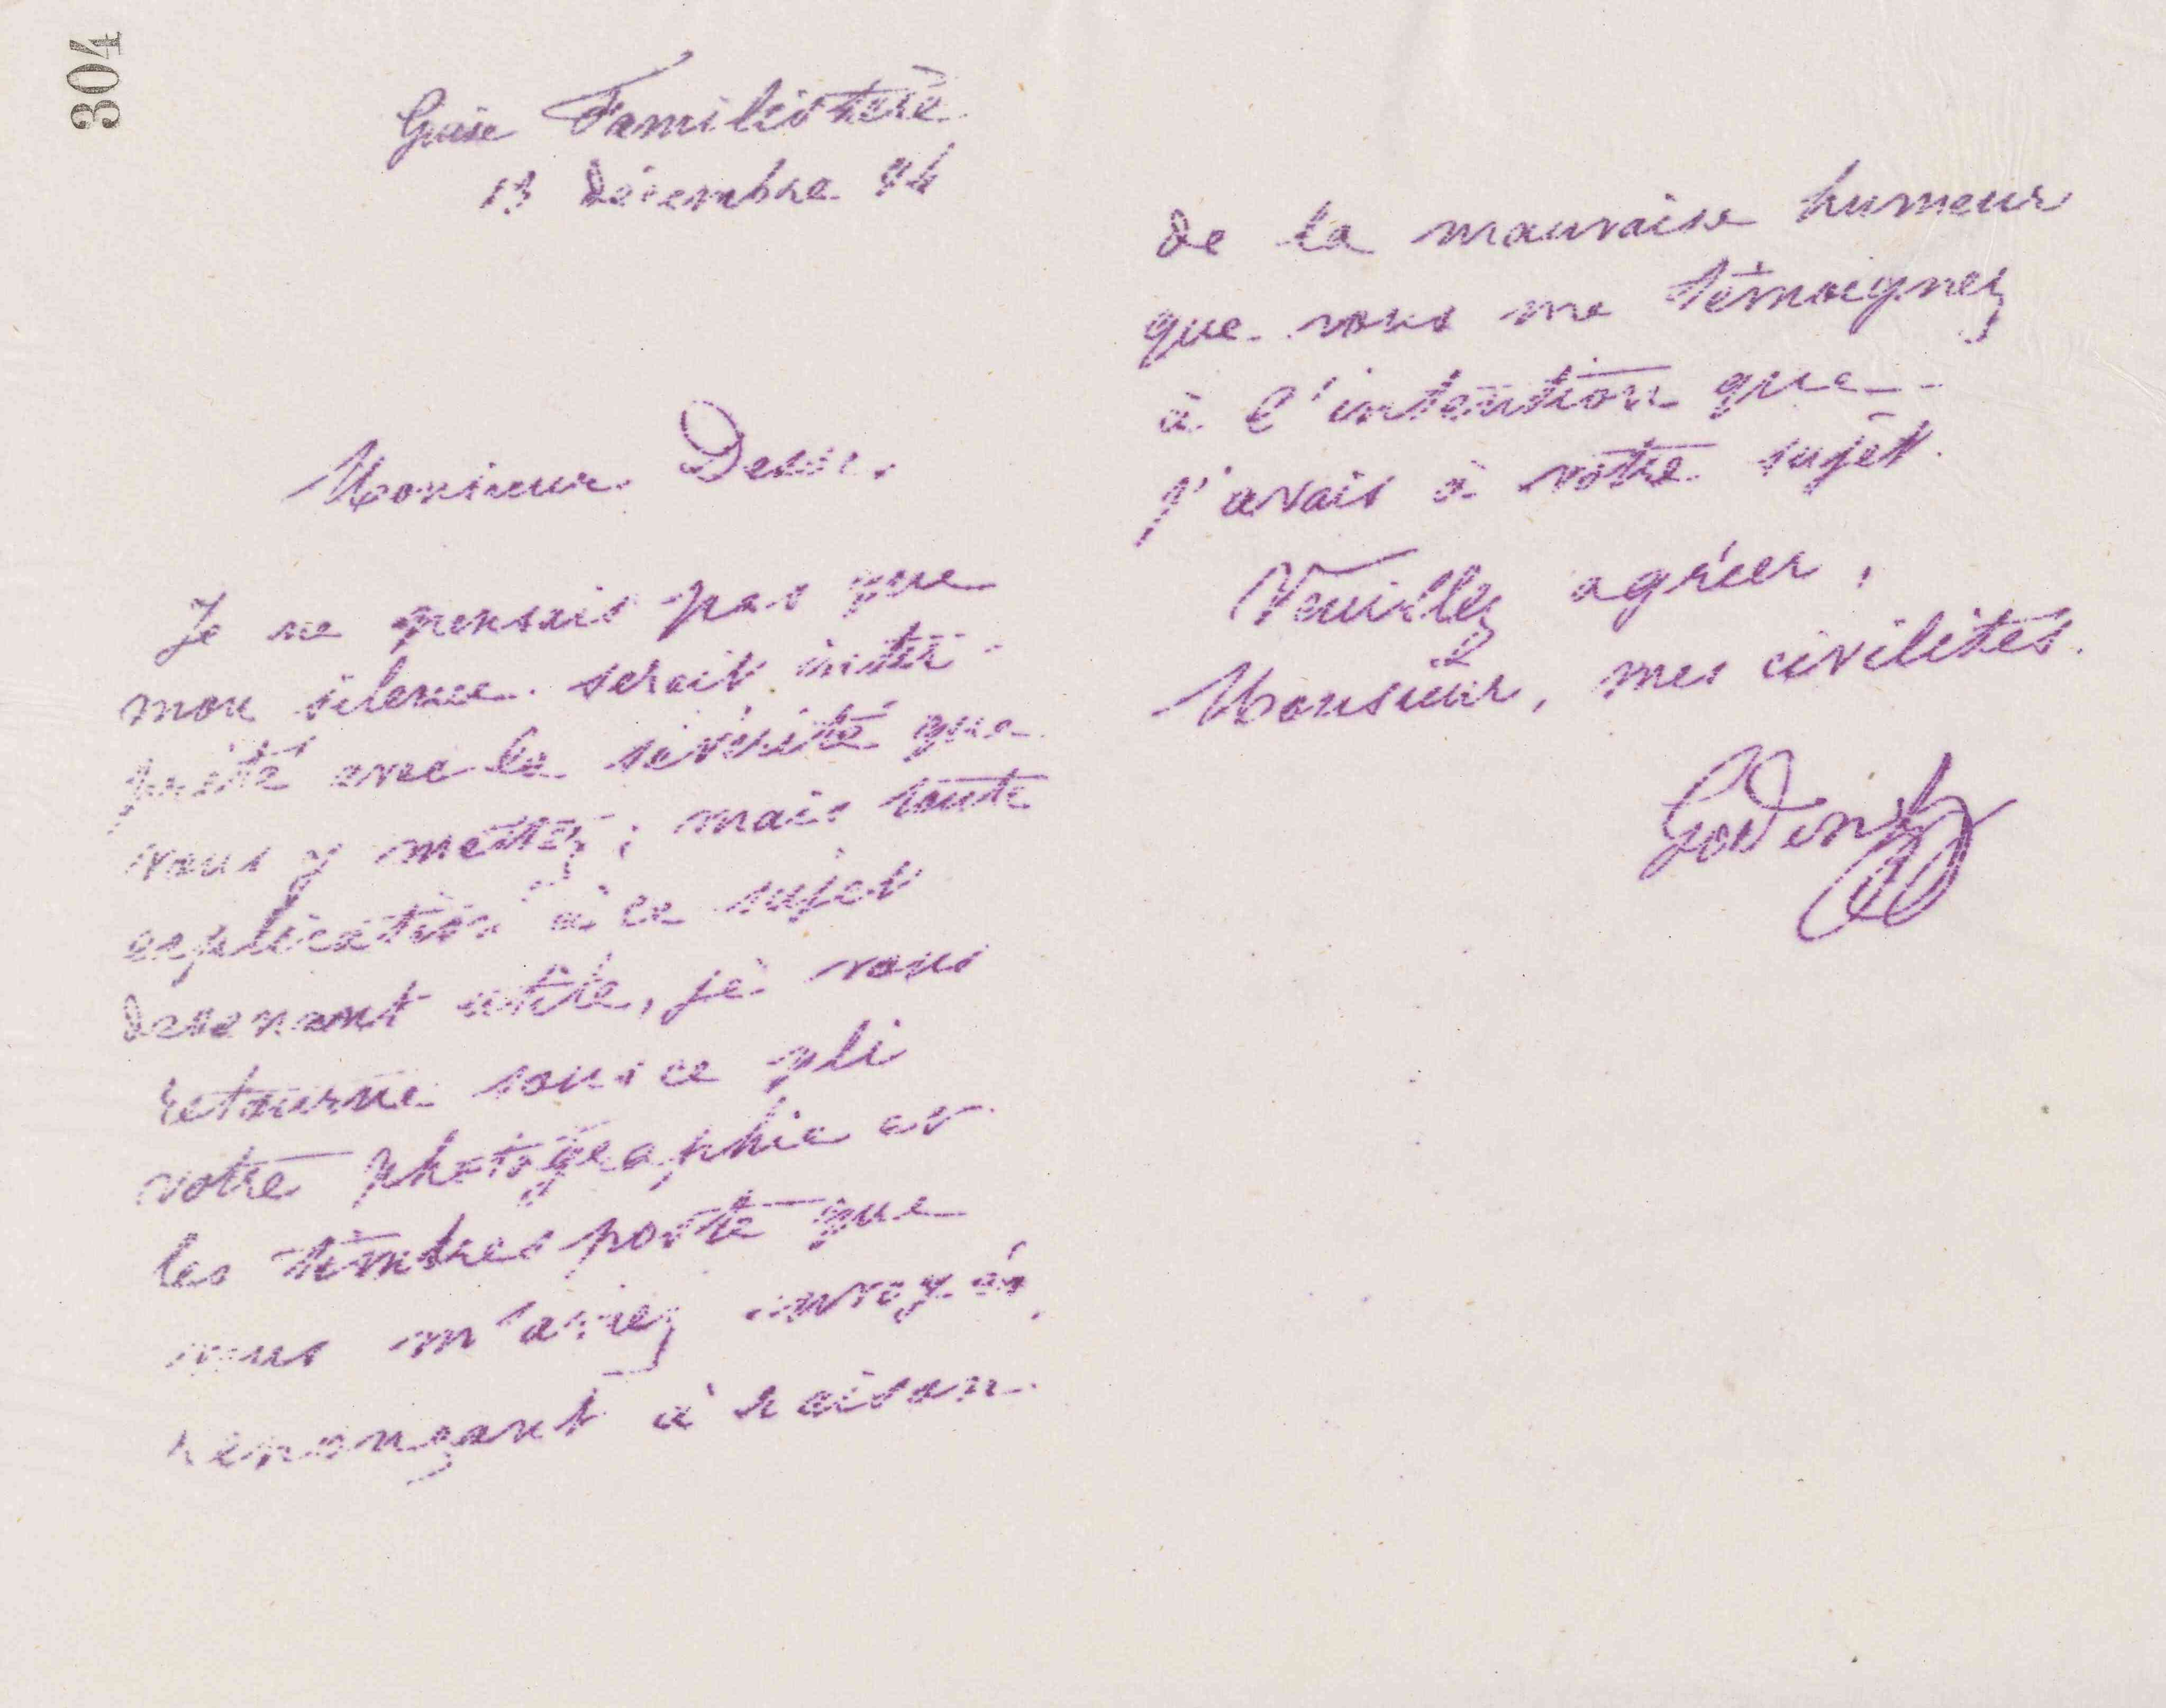 304
Guise Familistère
13 Décembre 74
Monsieur
Je ne pensais pas que
mon silence serait inter-
prété avec la sévérité que
vous y mettez ; mais toute
explication à ce sujet
devenant utile, je vous
retourne sous ce pli
votre photographie et
les timbres poste que
vous m'aviez envoyés,
renonçant à raison
de la mauvaise humeur
que vous me témoignez
à l'intention que
j'avais à votre sujet.
Veuillez agréer,
Monsieur, mes civilités.
Godin